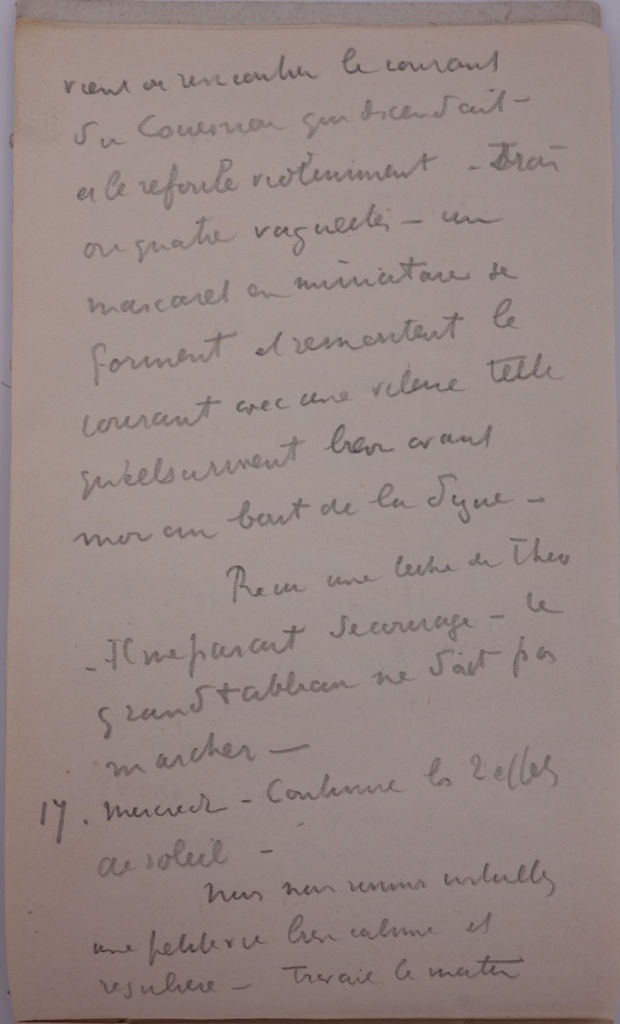 vient rencontrer le courant
du Couesnon qui descendait -
et le refoule violemment - Trois
ou quatre vaguelettes - un
mascaret en miniature se
forment et remontent le
courant avec une vitesse telle
qu'elles arrivent bien avant
moi au bout de la digue -
Recu une lettre de Theo
- Il me parait découragé - le
grand tableau ne doit pas
marcher -
17. mercredi - Continue les 2 effets
de soleil -
Nous nous sommes installés
une petite vie bien calme et
reguliere - Travail le matin